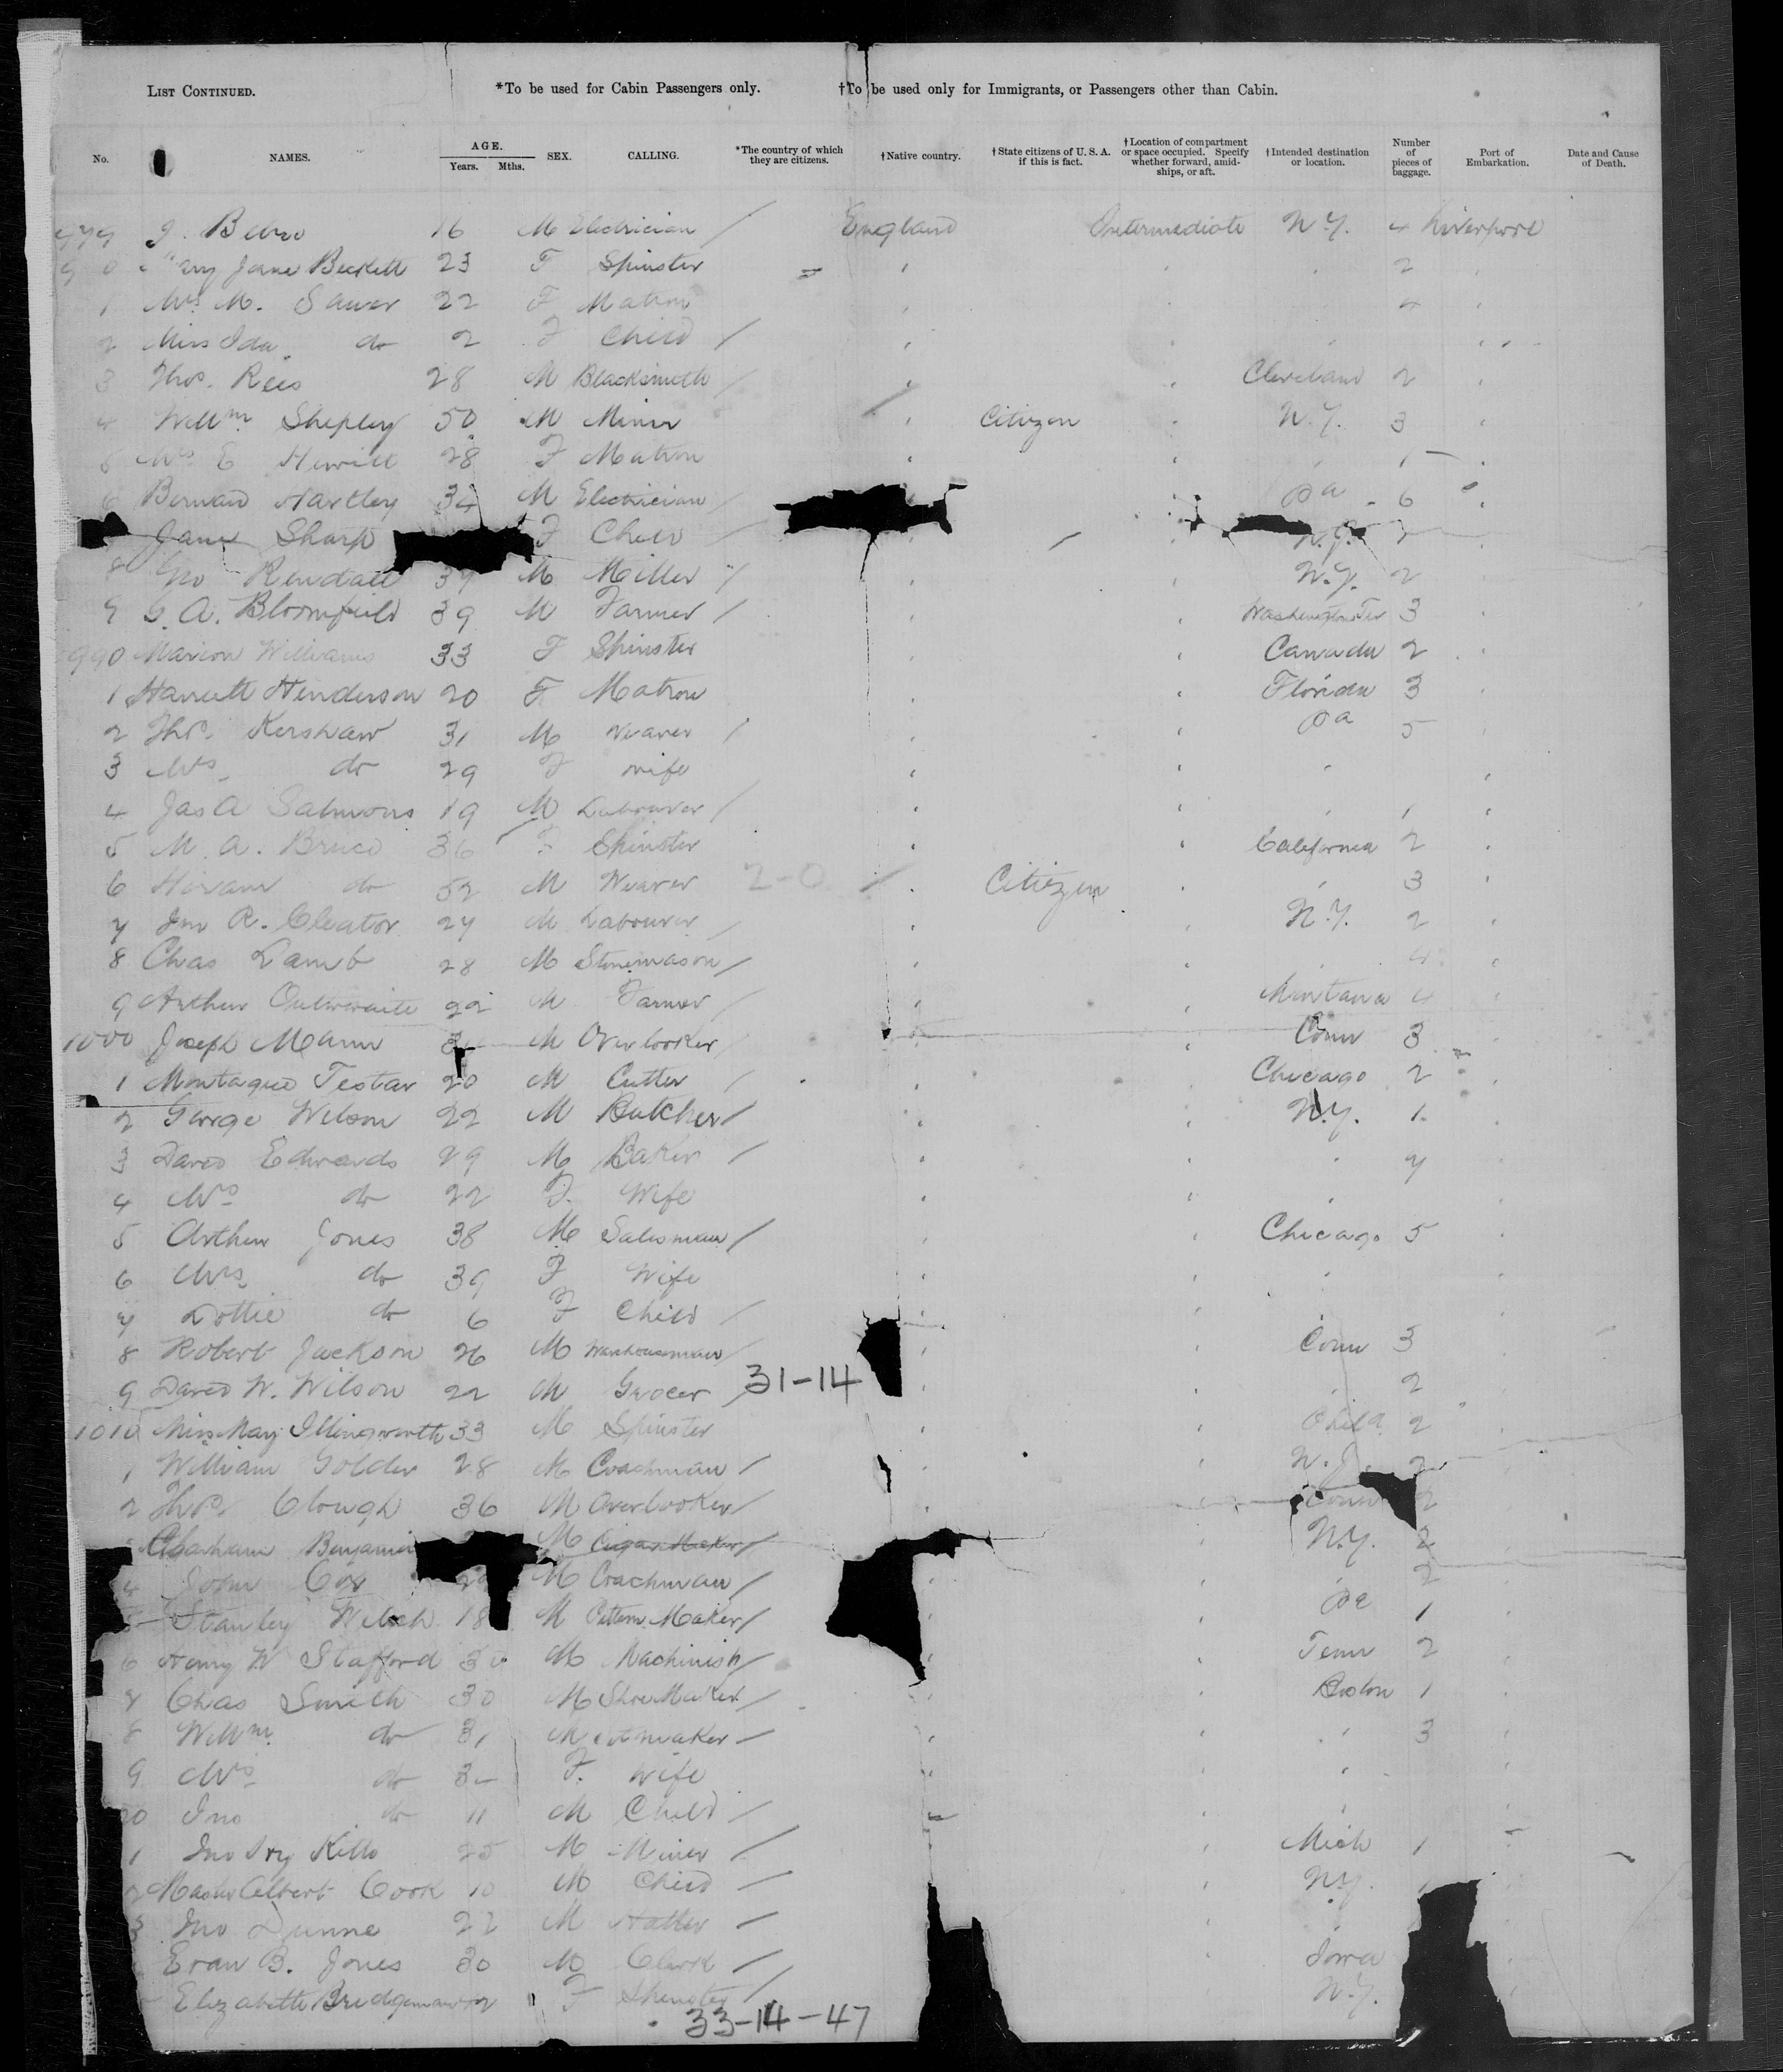 LIST CONTINUED. *To be used for Cabin Passengers only. †To be used only for Immigrants, or Passengers other than Cabin.
No. NAMES. AGE. Years. Mths. SEX. CALLING. *The country of which they are citizens. †Native country. †State citizens of U. S. A. if this is fact. †Location of compartment or space occupied. Specify whether forward, amid-ships, or aft. †Intended destination or location. Number of pieces of baggage. Port of Embarkation. Date and Cause of Death.
979 J. 16 M Electrician / England Intermediate N.Y. 4 Liverpool
Mary Jane Beckett 23 F Spinster 2
1 Mrs M. Sawer 22 F Matron 4
2 Miss Ida do 2 F Child /
3 Thos. Rees 28 M Blacksmith / Cleveland 2
4 Willm Shepley 50 M Miner / Citizen N.Y. 3
5 Mrs E Hewitt 28 F Matron 1
6 Bernard Hartley 34 M Electrician / Pa 6
Jane Sharp F Child /
8 Geo Kendall 39 M Miller / N.Y. 2
9 G. A. Bloomfield 39 M Farmer / Washington Ter 3
990 Marion Williams 33 F Spinster Canada 2
1 Harriett Henderson 20 F Matron Florida 3
2 Thos. Kershaw 31 M Weaver / Pa 5
3 Mrs do 29 F wife
4 Jas A Salmons 19 M Labourer / 1
5 M. A. Bruce 36 F Spinster California 2
6 Hiram do 52 M Weaver 2-0 / Citizen 3
7 Jno R. Cleator 27 M Labourer / N.Y. 2
8 Chas Lamb 28 M Stonemason / 4
9 Arthur Outwaite 22 M Farmer / Montana 4
1000 Joseph Mann M Overlooker / Conn 3
1 Montague Testar 20 M Cutter / Chicago 2
2 George Wilson 22 M Butcher / N.Y. 1
3 David Edwards 29 M Baker / 7
4 Mrs do 22 F. Wife
5 Arthur Jones 38 M Salesman / Chicago 5
6 Mrs do 39 F Wife
7 Lottie do 6 F Child /
8 Robert Jackson 26 M Warehouseman / Conn 3
9 David W. Wilson 22 M Grocer / 31-14 2
1010 Miss May Illingworth 33 M Spinster Phila 2
1 William Golder 28 M Coachman / N.J. 2
2 Thos. Clough 36 M Overlooker / Conn 2
Abraham Benjamin M Cigar Maker / N.Y. 2
4 John Cox M Coachman / 2
5 Stanley Welch 18 M Pattern Maker / Pa 1
6 Henry W Stafford 30 M Machinist / Tenn 2
7 Chas Smith 30 M Shoe Maker / Boston 1
8 Willm do 31 M / 3
9 Mrs do F. Wife
20 Jno do 11 M Child /
1 Jno 25 M Miner / Mich 1
2 Master Albert Cook 10 M Child / N.Y.
3 Jno Dunne 22 M Hatter /
Evan B. Jones 30 M Clerk / Iowa
Elizabeth Bridgeman F Spinster / N.Y.
33-14-47